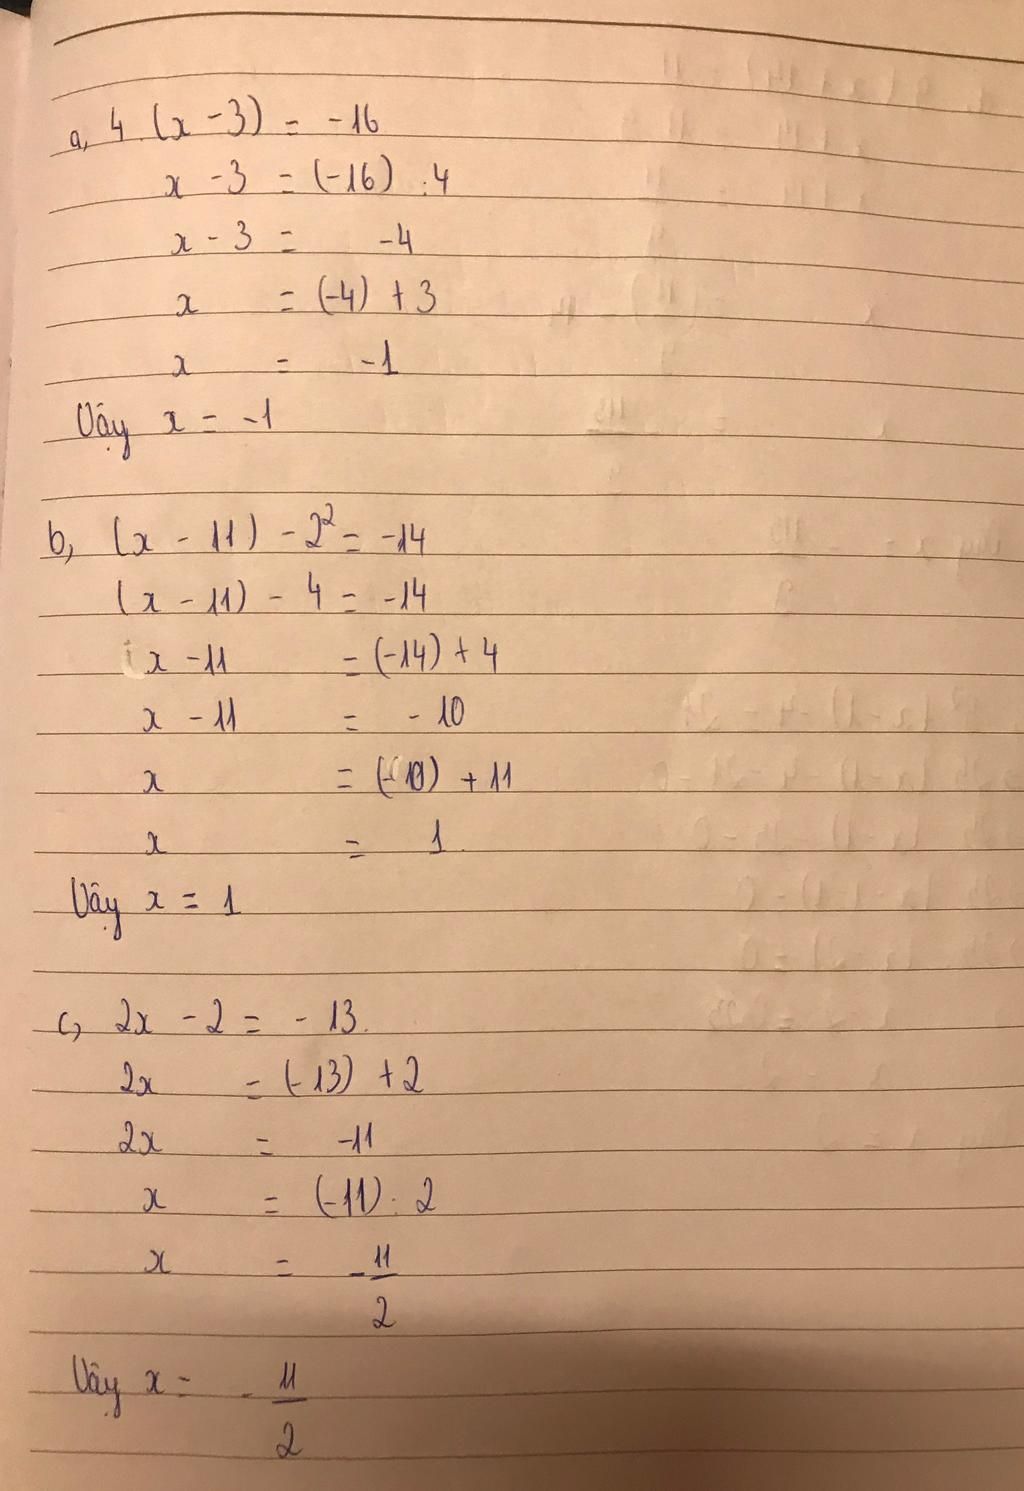 a, 4.(x - 3) = -16
x - 3 = (-16) : 4
x - 3 = -4
x = (-4) + 3
x = -1
Vậy x = -1
b, (x - 11) - 2² = -14
(x - 11) - 4 = -14
x - 11 = (-14) + 4
x - 11 = - 10
x = (-10) + 11
x = 1.
Vậy x = 1
c, 2x - 2 = - 13.
2x = (-13) + 2
2x = -11
x = (-11) : 2
x = - 11
2
Vậy x = - 11
2